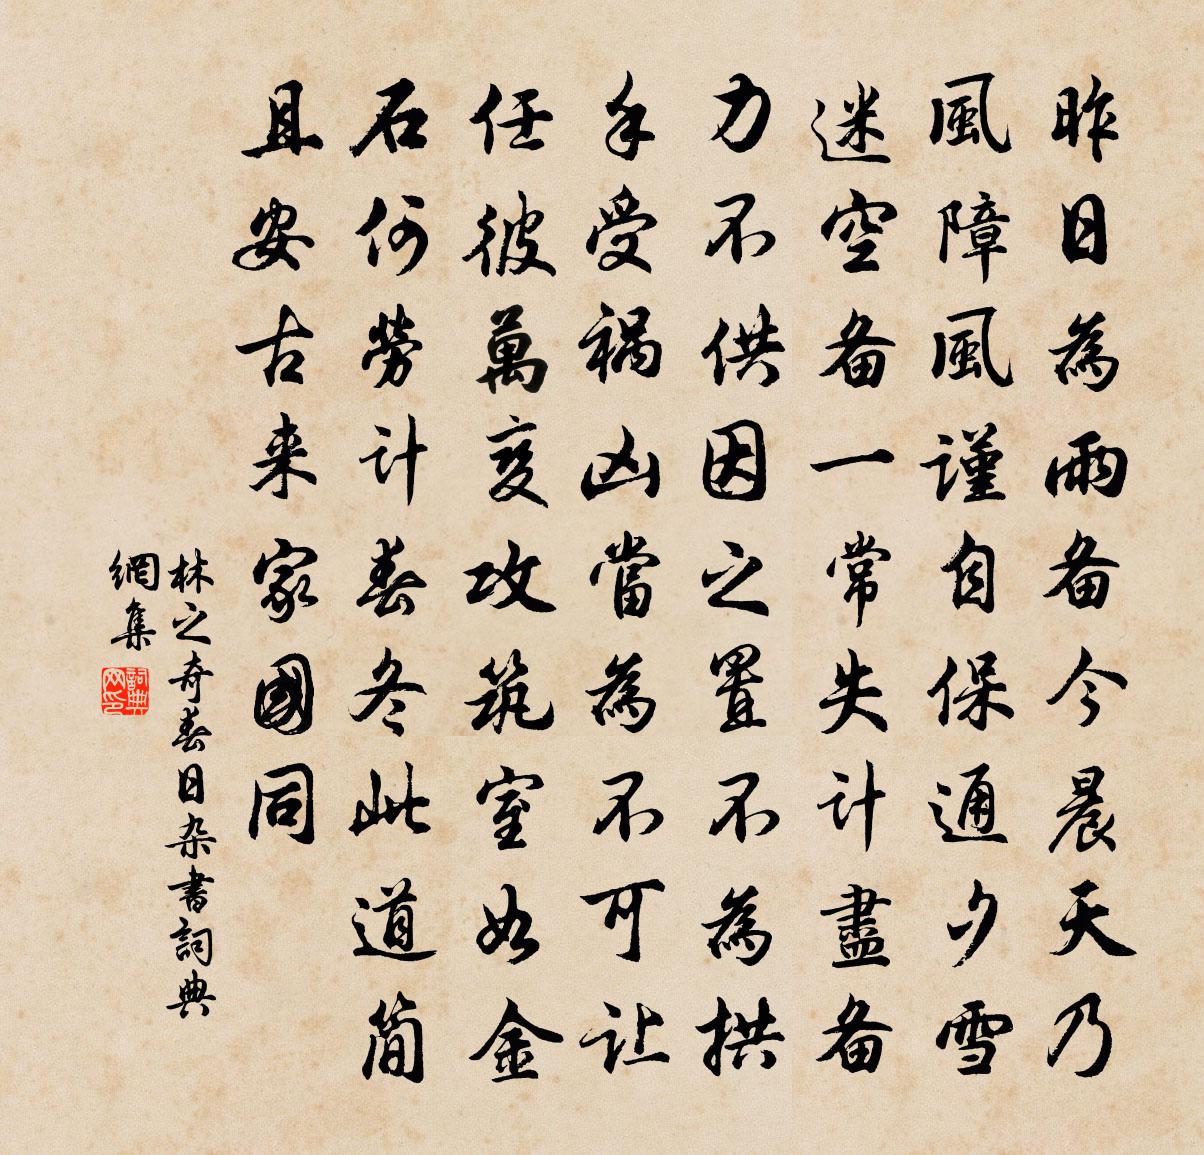 昨日為雨备今晨天乃
風障風謹自保通夕雪
迷空备一常失計盡备
力不供因之置不為拱
手受禍凶當為不可让
任彼萬变攻筑室如金
石何勞計春冬此道简
且安古来家國同
林之奇春日杂書詞典
網集
詞典網印